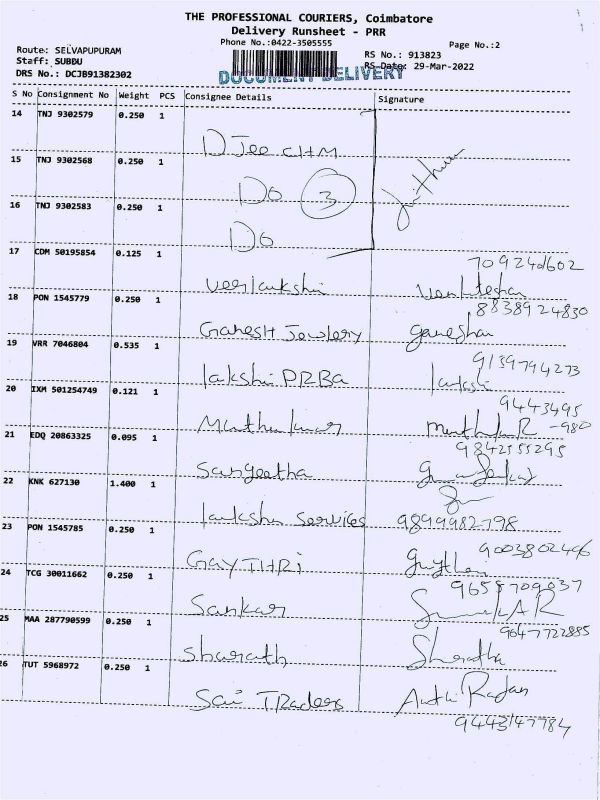 THE PROFESSIONAL COURIERS, Coimbatore
Delivery Runsheet - PRR
Phone No.:0422-3505555
Page No.:2
Route: SELVAPUPURAM
RS No.: 913823
Staff: SUBDU
DOCUMENT DELIVERY
RS Date: 29-Mar-2022
DRS No.: DCJB91382302
S No Consignment No Weight PCS Consignee Details Signature
14 TNJ 9302579 0.250 1
D Jee CHM
15 TNJ 9302568 0.250 1
Do 3
16 TNJ 9302583 0.250 1
Do
17 CDM 50195854 0.125 1
Veerlakshmi
18 PON 1545779 0.250 1
8838924830
Ganesh Jewlery ganeshan
19 VRR 7046804 0.535 1
9139794273
lakshmi PRBa lakshi
20 IXM 501254749 0.121 1
9443495
Muthukumar -980
21 EDQ 20863325 0.095 1
9842555295
Sangeetha
22 KNK 627130 1.400 1
lakshmi Services 9899982798
23 PON 1545785 0.250 1
9003802406
GayTHRi
24 TCG 30011662 0.250 1
9658709037
Sankar
25 MAA 287790599 0.250 1
9047722885
Sharath
26 TUT 5968972 0.250 1
Sai TRaders
9443147784